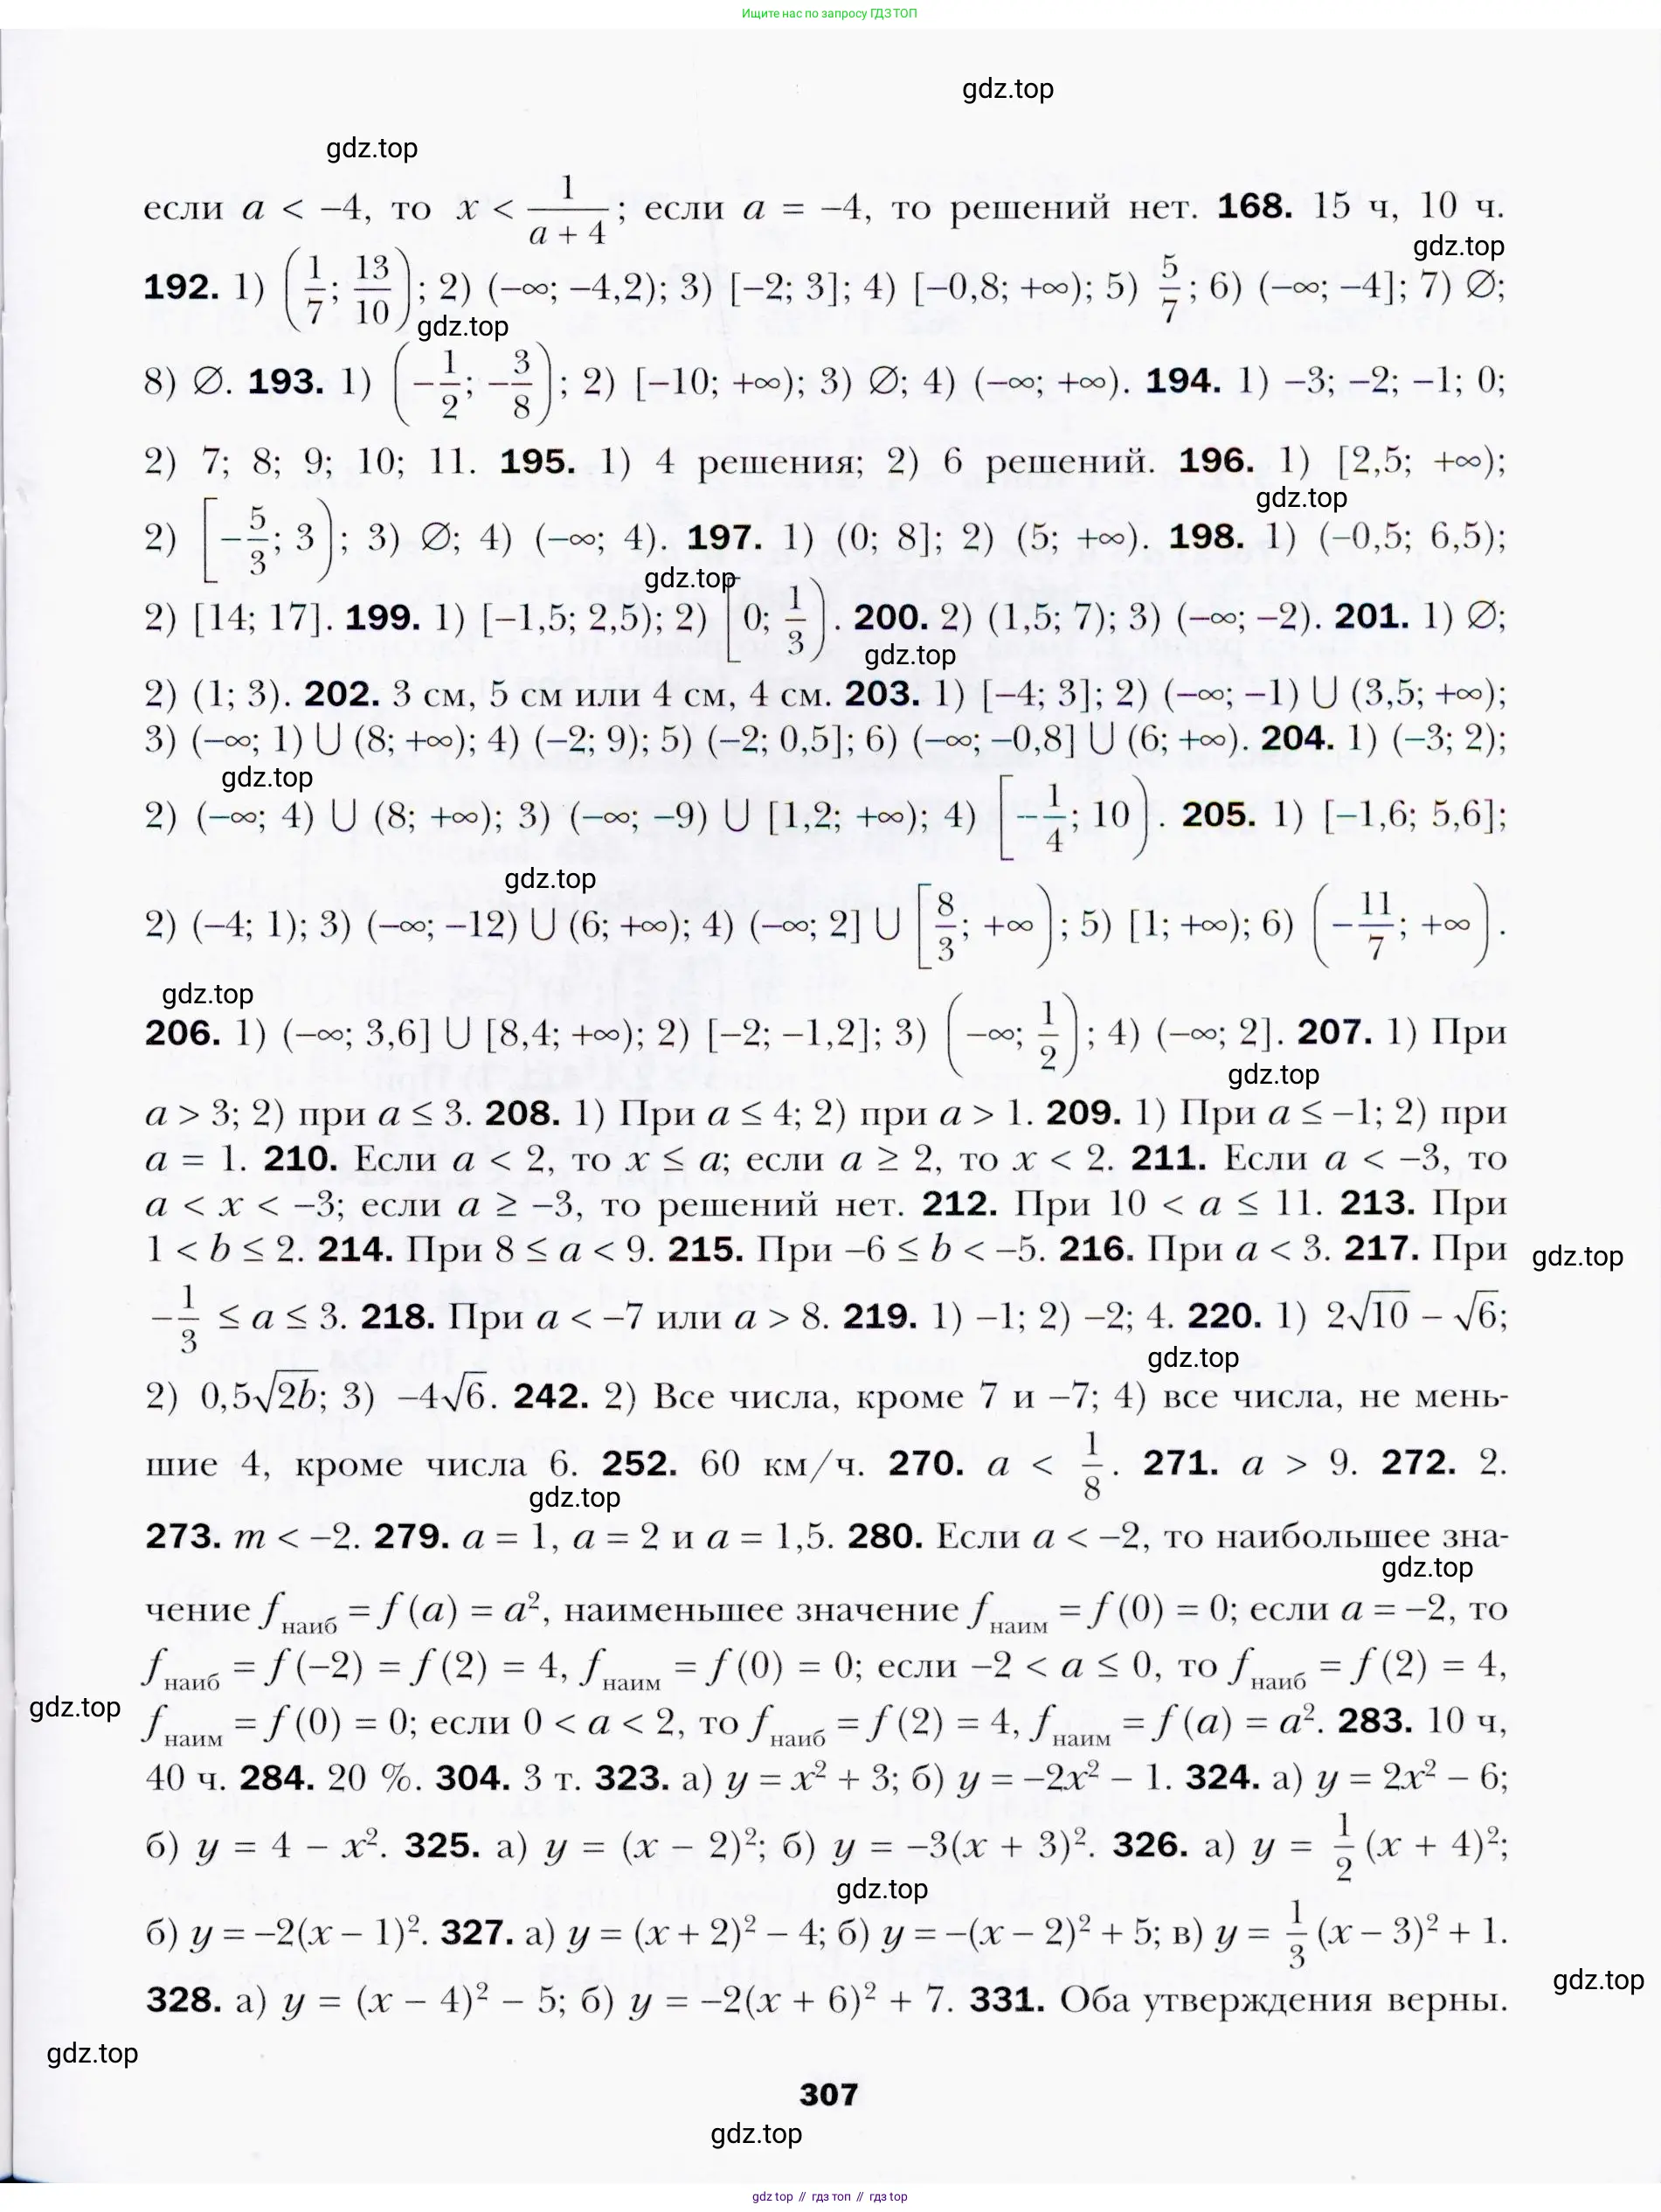 Ищите нас по запросу ГДЗ ТОП
gdz.top
gdz.top
если a < –4, то x < 1/(a + 4); если a = –4, то решений нет. 168. 15 ч, 10 ч.
gdz.top
192. 1) (1/7; 13/10); 2) (–∞; –4,2); 3) [–2; 3]; 4) [–0,8; +∞); 5) 5/7; 6) (–∞; –4]; 7) ∅;
gdz.top
8) ∅. 193. 1) (–1/2; –3/8); 2) [–10; +∞); 3) ∅; 4) (–∞; +∞). 194. 1) –3; –2; –1; 0;
2) 7; 8; 9; 10; 11. 195. 1) 4 решения; 2) 6 решений. 196. 1) [2,5; +∞);
gdz.top
2) [–5/3; 3); 3) ∅; 4) (–∞; 4). 197. 1) (0; 8]; 2) (5; +∞). 198. 1) (–0,5; 6,5);
gdz.top
2) [14; 17]. 199. 1) [–1,5; 2,5); 2) [0; 1/3). 200. 2) (1,5; 7); 3) (–∞; –2). 201. 1) ∅;
gdz.top
2) (1; 3). 202. 3 см, 5 см или 4 см, 4 см. 203. 1) [–4; 3]; 2) (–∞; –1) ∪ (3,5; +∞);
3) (–∞; 1) ∪ (8; +∞); 4) (–2; 9); 5) (–2; 0,5]; 6) (–∞; –0,8] ∪ (6; +∞). 204. 1) (–3; 2);
gdz.top
2) (–∞; 4) ∪ (8; +∞); 3) (–∞; –9) ∪ [1,2; +∞); 4) [–1/4; 10). 205. 1) [–1,6; 5,6];
gdz.top
2) (–4; 1); 3) (–∞; –12) ∪ (6; +∞); 4) (–∞; 2] ∪ [8/3; +∞); 5) [1; +∞); 6) (–11/7; +∞).
gdz.top
206. 1) (–∞; 3,6] ∪ [8,4; +∞); 2) [–2; –1,2]; 3) (–∞; 1/2); 4) (–∞; 2]. 207. 1) При
gdz.top
a > 3; 2) при a ≤ 3. 208. 1) При a ≤ 4; 2) при a > 1. 209. 1) При a ≤ –1; 2) при
a = 1. 210. Если a < 2, то x ≤ a; если a ≥ 2, то x < 2. 211. Если a < –3, то
a < x < –3; если a ≥ –3, то решений нет. 212. При 10 < a ≤ 11. 213. При
1 < b ≤ 2. 214. При 8 ≤ a < 9. 215. При –6 ≤ b < –5. 216. При a < 3. 217. При
gdz.top
–1/3 ≤ a ≤ 3. 218. При a < –7 или a > 8. 219. 1) –1; 2) –2; 4. 220. 1) 2√10 – √6;
gdz.top
2) 0,5√2b; 3) –4√6. 242. 2) Все числа, кроме 7 и –7; 4) все числа, не мень-
шие 4, кроме числа 6. 252. 60 км/ч. 270. a < 1/8. 271. a > 9. 272. 2.
gdz.top
273. m < –2. 279. a = 1, a = 2 и a = 1,5. 280. Если a < –2, то наибольшее зна-
gdz.top
чение fнаиб = f(a) = a², наименьшее значение fнаим = f(0) = 0; если a = –2, то
fнаиб = f(–2) = f(2) = 4, fнаим = f(0) = 0; если –2 < a ≤ 0, то fнаиб = f(2) = 4,
gdz.top
fнаим = f(0) = 0; если 0 < a < 2, то fнаиб = f(2) = 4, fнаим = f(a) = a². 283. 10 ч,
40 ч. 284. 20 %. 304. 3 т. 323. а) y = x² + 3; б) y = –2x² – 1. 324. а) y = 2x² – 6;
б) y = 4 – x². 325. а) y = (x – 2)²; б) y = –3(x + 3)². 326. а) y = 1/2 (x + 4)²;
gdz.top
б) y = –2(x – 1)². 327. а) y = (x + 2)² – 4; б) y = –(x – 2)² + 5; в) y = 1/3 (x – 3)² + 1.
gdz.top
328. а) y = (x – 4)² – 5; б) y = –2(x + 6)² + 7. 331. Оба утверждения верны.
gdz.top
307
gdz.top
gdz top // гдз топ // гдз top